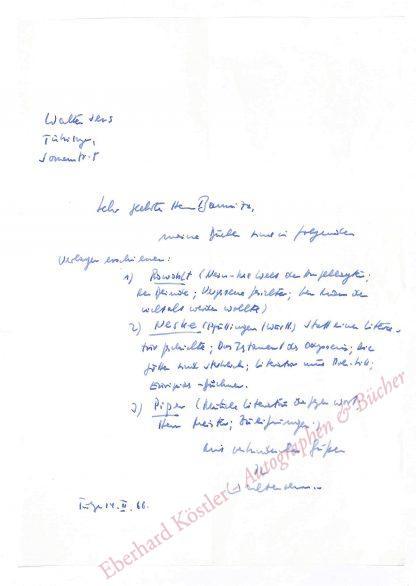 Walter Jens
Tübingen,
Sonnenstr. 5
Sehr geehrter Herr
meine Bücher sind in folgenden
Verlagen erschienen:
1) Rowohlt (Nein - die Welt der Angeklagten;
der Blinde; Vergessene Gesichter; der Mann, der
nicht alt werden wollte)
2) Neske (Pfullingen (Württ.) Statt einer Litera-
turgeschichte; Das Testament des Odysseus; die
Götter sind sterblich; Literatur und Politik;
Euripides-Büchner.
3) Piper (Deutsche Literatur der Gegenwart
Herr Meister; Zueignungen;
Mit verbindlichen Grüßen
Ihr
Walter Jens
14. II. 66.
Eberhard Köstler - Autographen & Bücher